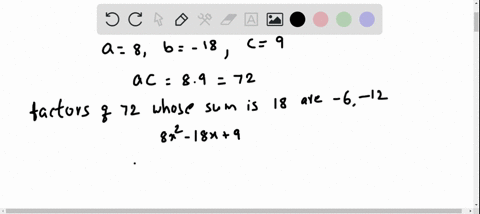 a = 8, b = -18, c = 9
ac = 8.9 = 72
factors of 72 whose sum is 18 are -6, -12
8x² - 18x + 9